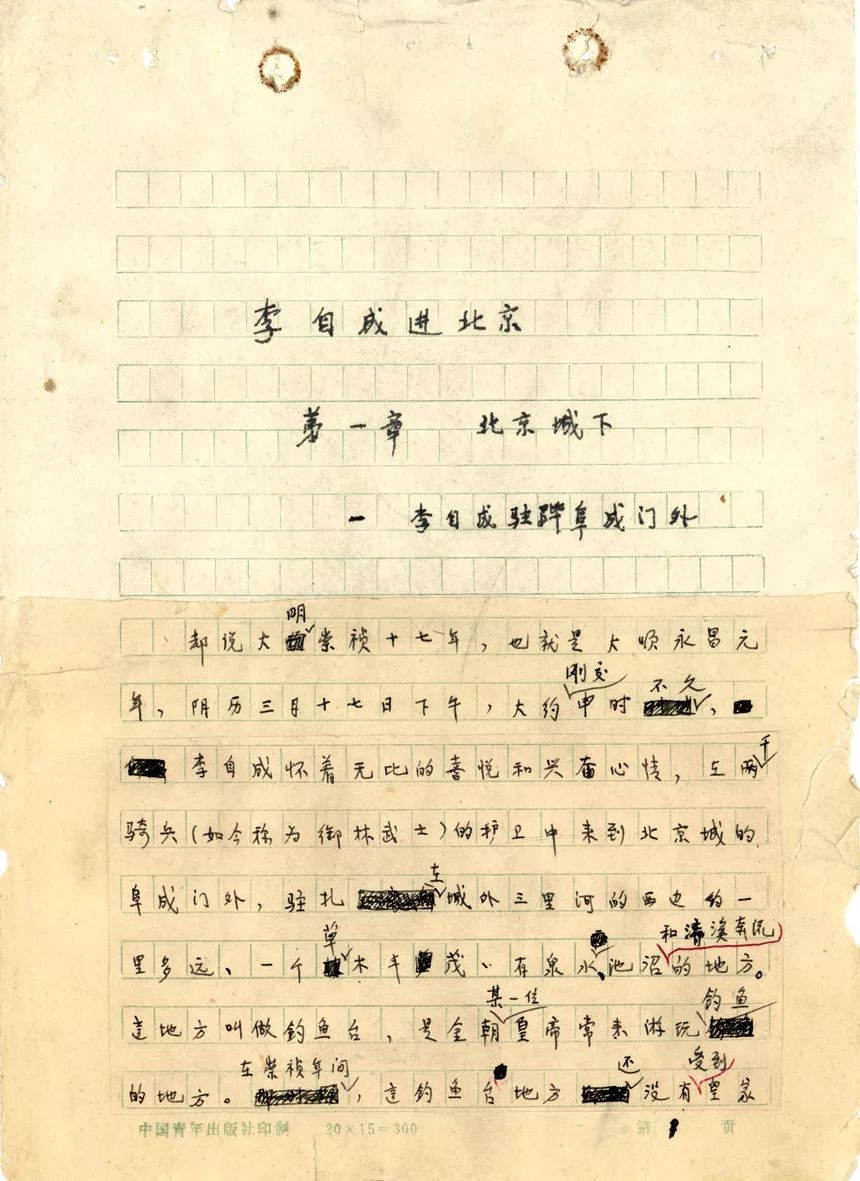 李自成进北京
第一章 北京城下
一 李自成驻跸阜成门外
却说大明崇祯十七年，也就是大顺永昌元
年，阴历三月十七日下午，大约刚交申时不久，
李自成怀着无比的喜悦和兴奋心情，在两千
骑兵(如今称为御林武士)的护卫中来到北京城的
阜成门外，驻扎在城外三里河的西边约一
里多远、一个草木丰茂、有泉水、池沼和清溪奔流的地方。
这地方叫做钓鱼台，是金朝某一位皇帝常来游玩钓鱼
的地方。在崇祯年间，这钓鱼台地方还没有受到皇家
中国青年出版社印制 20×15=300 第1页